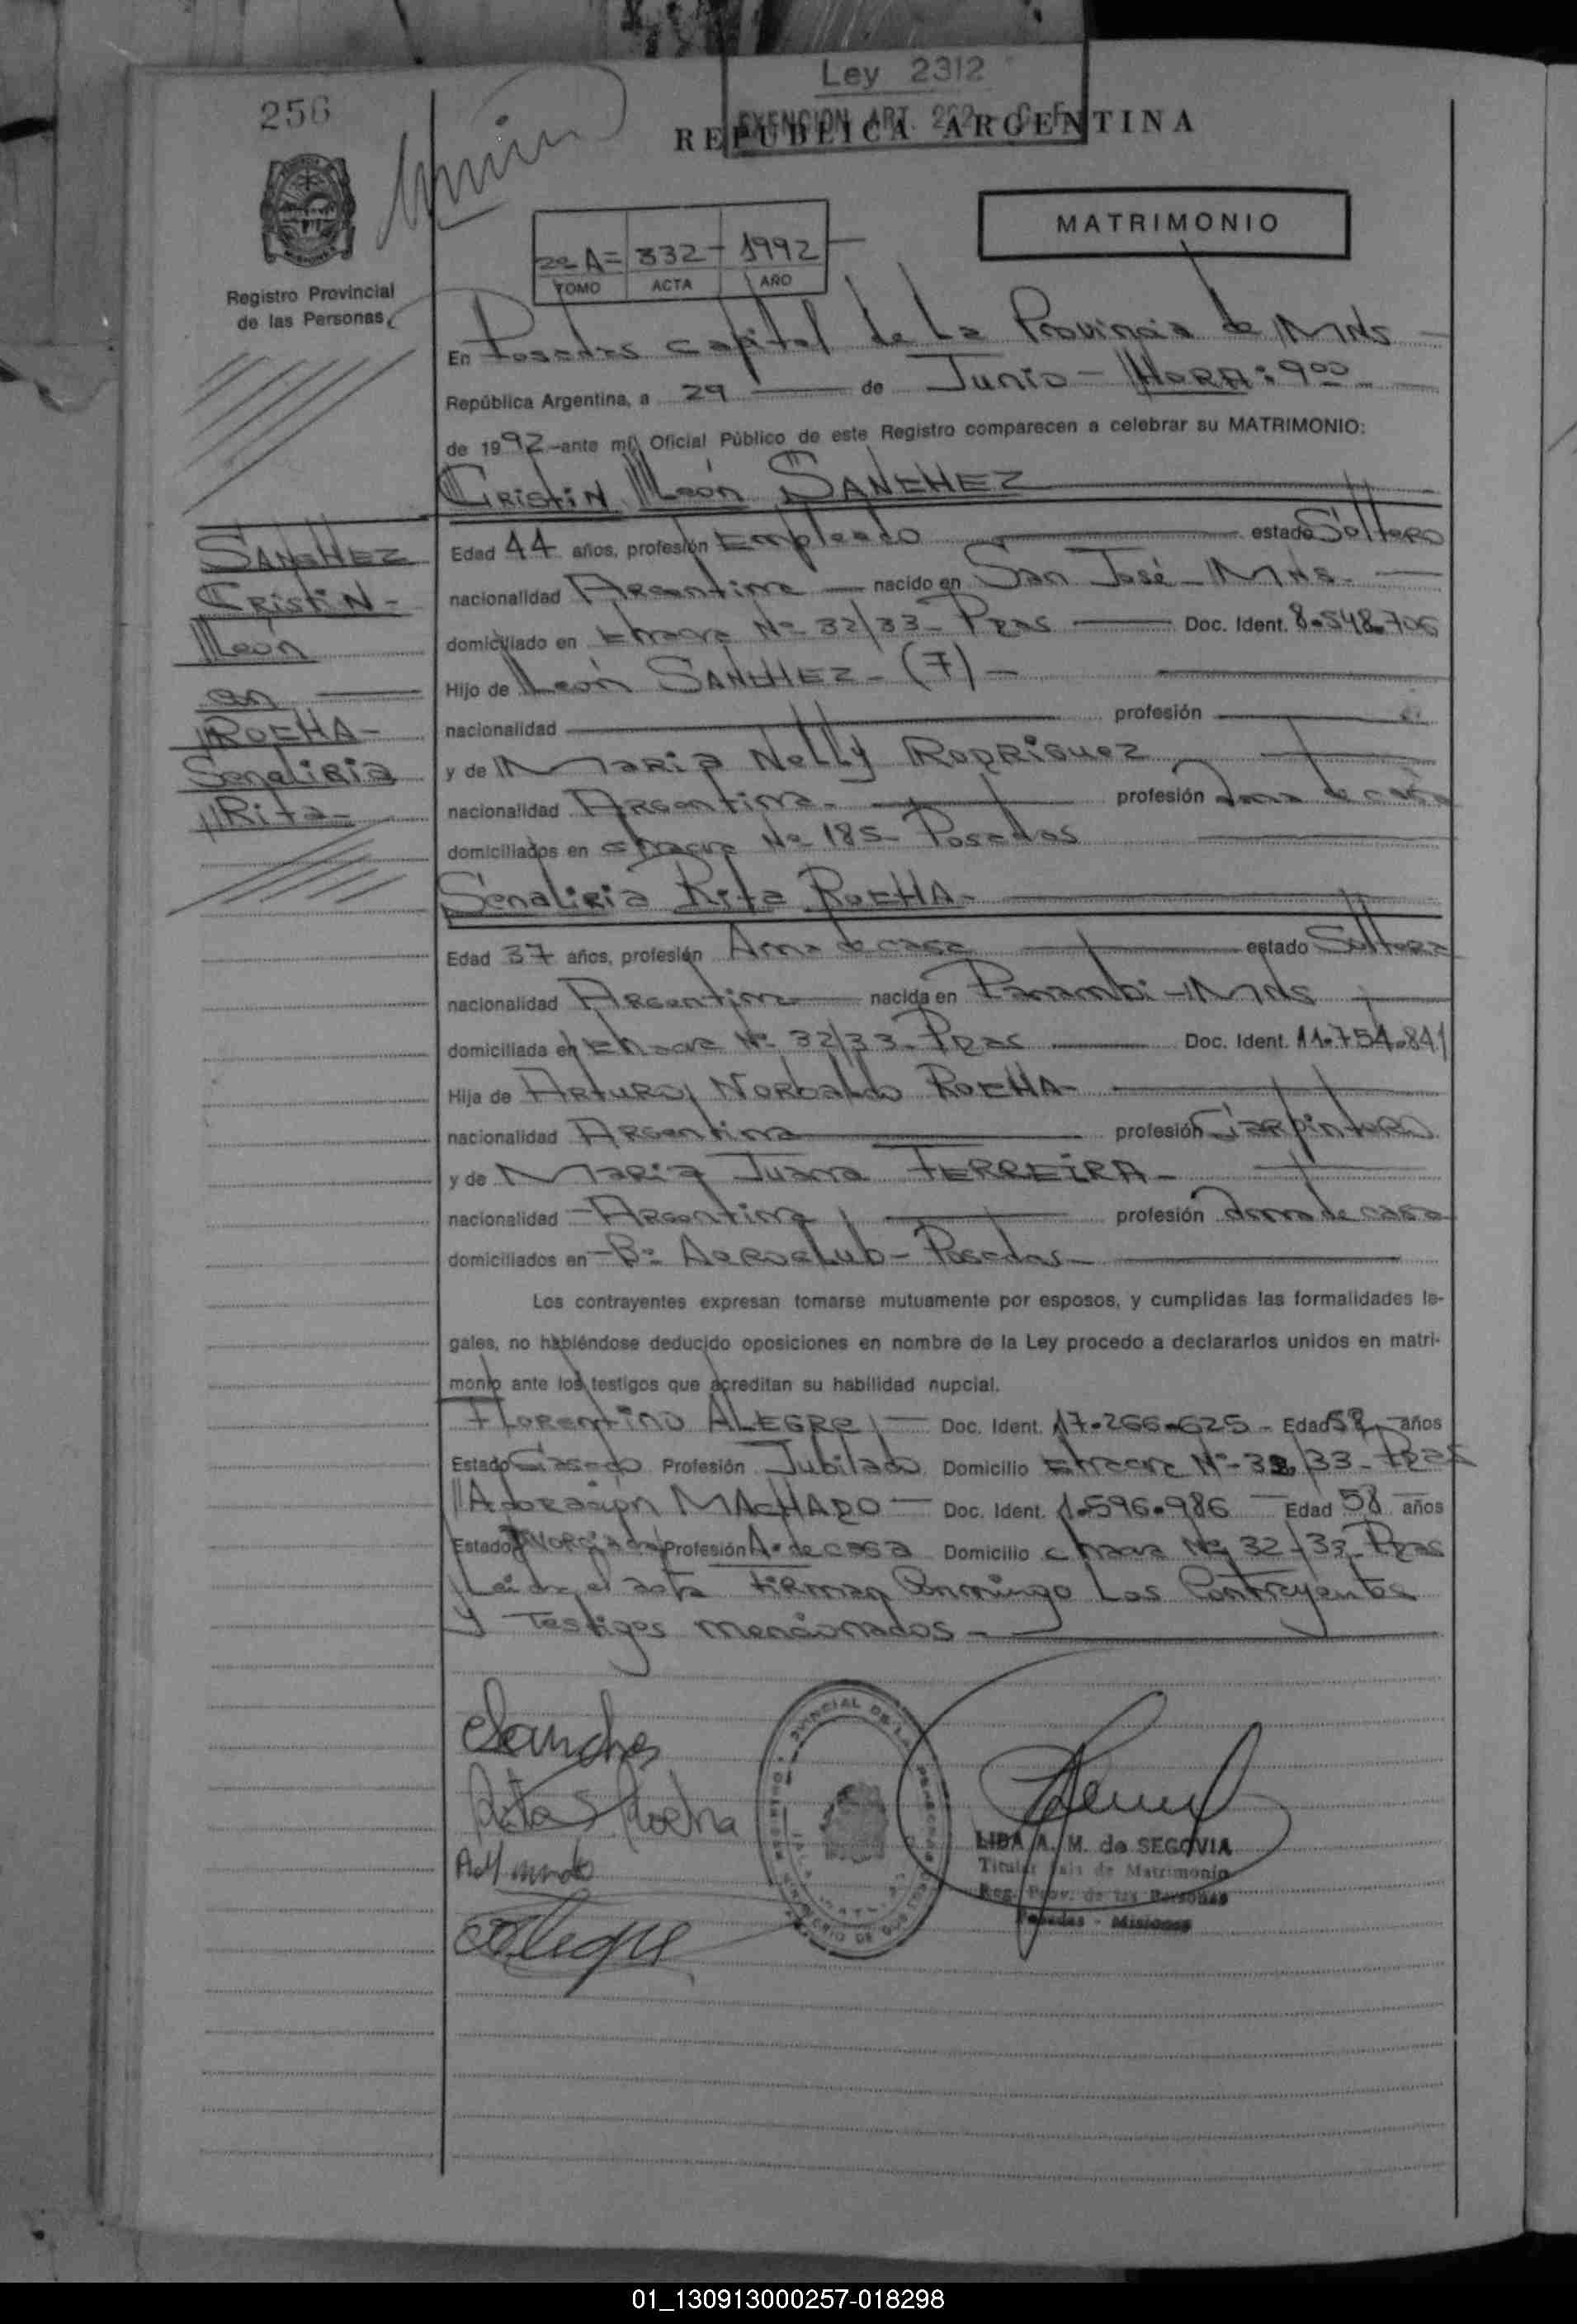 Ley 2312
EXENCION ART. 262
256
REPUBLICA ARGENTINA
MATRIMONIO
2º A= 332- 1992
TOMO ACTA AÑO
Registro Provincial
de las Personas
En Posadas capital de La Provincia de Mnes
República Argentina, a 29 de Junio - HORA: 9ºº
de 1992-ante mí, Oficial Público de este Registro comparecen a celebrar su MATRIMONIO:
CRISTIN León SANCHEZ
Edad 44 años, profesión Empleado estado Soltero
nacionalidad Argentina nacido en San José - Mnes.
domiciliado en chacra Nº 32/33- Pdas Doc. Ident. 8.548.706
Hijo de León SANCHEZ - (7) -
nacionalidad profesión
y de Maria Nelly RODRIGUEZ
nacionalidad Argentina- profesión ama de casa
domiciliados en chacra Nº 185- Posadas
SANCHEZ
CRISTIN-
León
en
ROCHA-
Senaliria
Rita-
Senaliria Rita ROCHA-
Edad 37 años, profesión Ama de casa estado Soltera
nacionalidad Argentina nacida en Panambi - Mnes
domiciliada en chacra Nº 32/33- Pdas Doc. Ident. 11.754.841
Hija de Arturo Norbaldo ROCHA-
nacionalidad Argentina profesión Carpintero
y de Maria Juana FERREIRA-
nacionalidad -Argentina profesión ama de casa
domiciliados en -Bº Aeroclub - Posadas-
Los contrayentes expresan tomarse mutuamente por esposos, y cumplidas las formalidades le-
gales, no habiéndose deducido oposiciones en nombre de la Ley procedo a declararlos unidos en matri-
monio ante los testigos que acreditan su habilidad nupcial.
Florentino ALEGRE Doc. Ident. 17.266.625- Edad 58 años
Estado Casado Profesión Jubilado Domicilio chacra Nº- 32/33- Pdas
Adoración MACHADO Doc. Ident. 1.596.986 Edad 58 años
Estado Profesión A. de casa Domicilio chacra Nº 32-33- Pdas
Leida el acta firman conmingo Los Contrayentes
y Testigos mencionados-
Sanches
Rita S Rocha
Alegre
LIDA A. M. de SEGOVIA
Titular Sala de Matrimonio
Reg. Prov. de las Personas
Posadas - Misiones
01_130913000257-018298